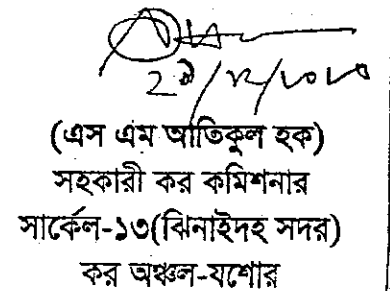 (এস এম আতিকুল হক)
সহকারী কর কমিশনার
সার্কেল-১৩(ঝিনাইদহ সদর)
কর অঞ্চল-যশোর